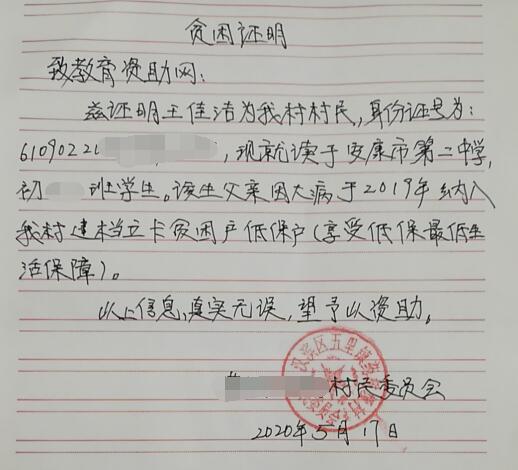 贫困证明
致教育资助网：
兹证明王佳洁为我村村民，身份证号为：
6109022，现就读于安康市第二中学，
初 班学生。该生父亲因大病于2019年纳入
我村建档立卡贫困户低保户（享受低保最低生
活保障）。
以上信息，真实无误，望予以资助。
汉滨区五里镇
村民委员会
2020年5月17日